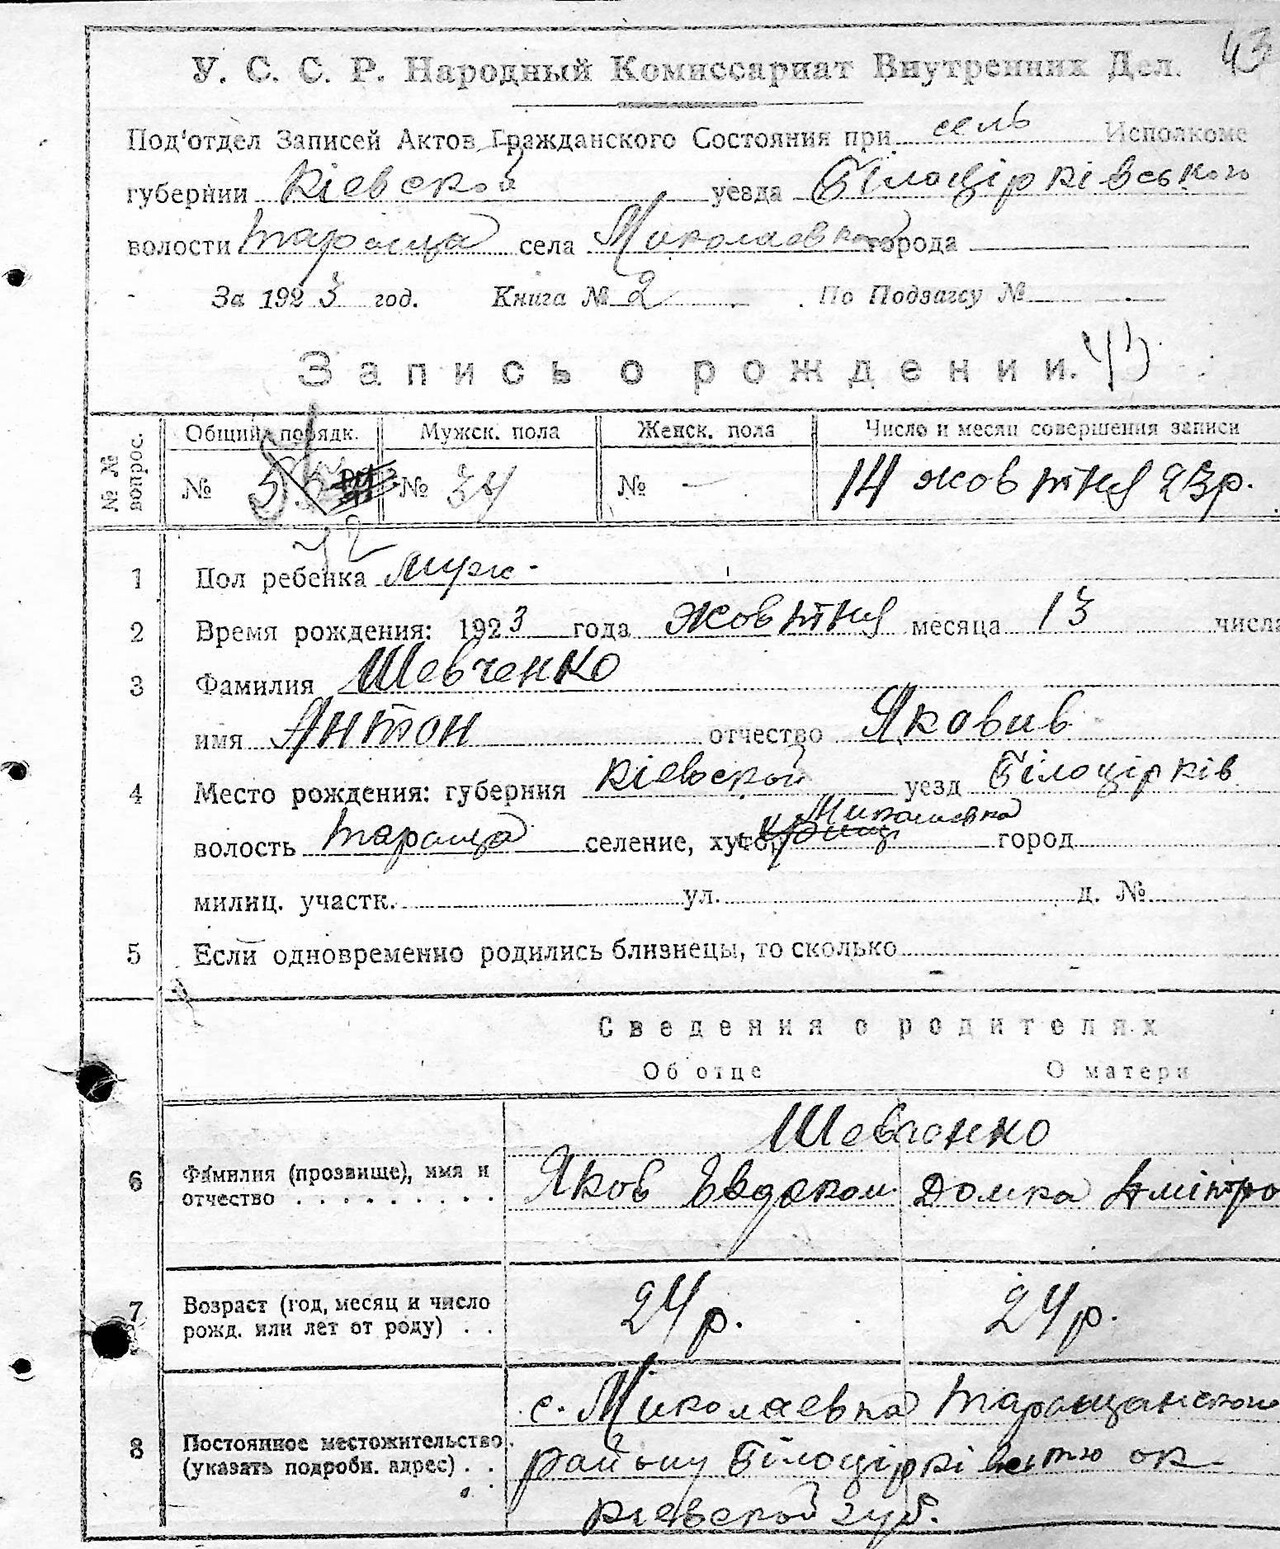 43
У. С. С. Р. Народный Комиссариат Внутренних Дел.
Под'отдел Записей Актов Гражданского Состояния при сель Исполкоме
губернии Кіевской уезда Білоцірківського
волости Тараща села Миколаевка города
За 1923 год. Книга № 2 По Подзагсу №
Запись о рождении. 43
№ № вопрос. Общий порядк. Мужск. пола Женск. пола Число и месяц совершения записи
№ № 34 № — 14 жовтня 23р.
72
1 Пол ребенка муж.
2 Время рождения: 1923 года жовтня месяца 13 числа
3 Фамилия Шевченко
имя Антон отчество Яковив
4 Место рождения: губерния Кіевской уезд Білоцірків
волость Тараща селение, хутор Миколаевка город
милиц. участк. ул. д. №
5 Если одновременно родились близнецы, то сколько
Сведения о родителях
Об отце О матери
Шевченко
6 Фамилия (прозвище), имя и отчество Яков Евдоким Домка Дмітро
7 Возраст (год, месяц и число рожд. или лет от роду) 24 р. 24 р.
с. Миколаевка Таращанского
8 Постоянное местожительство (указать подробн. адрес) району ок
Кіевской губ.